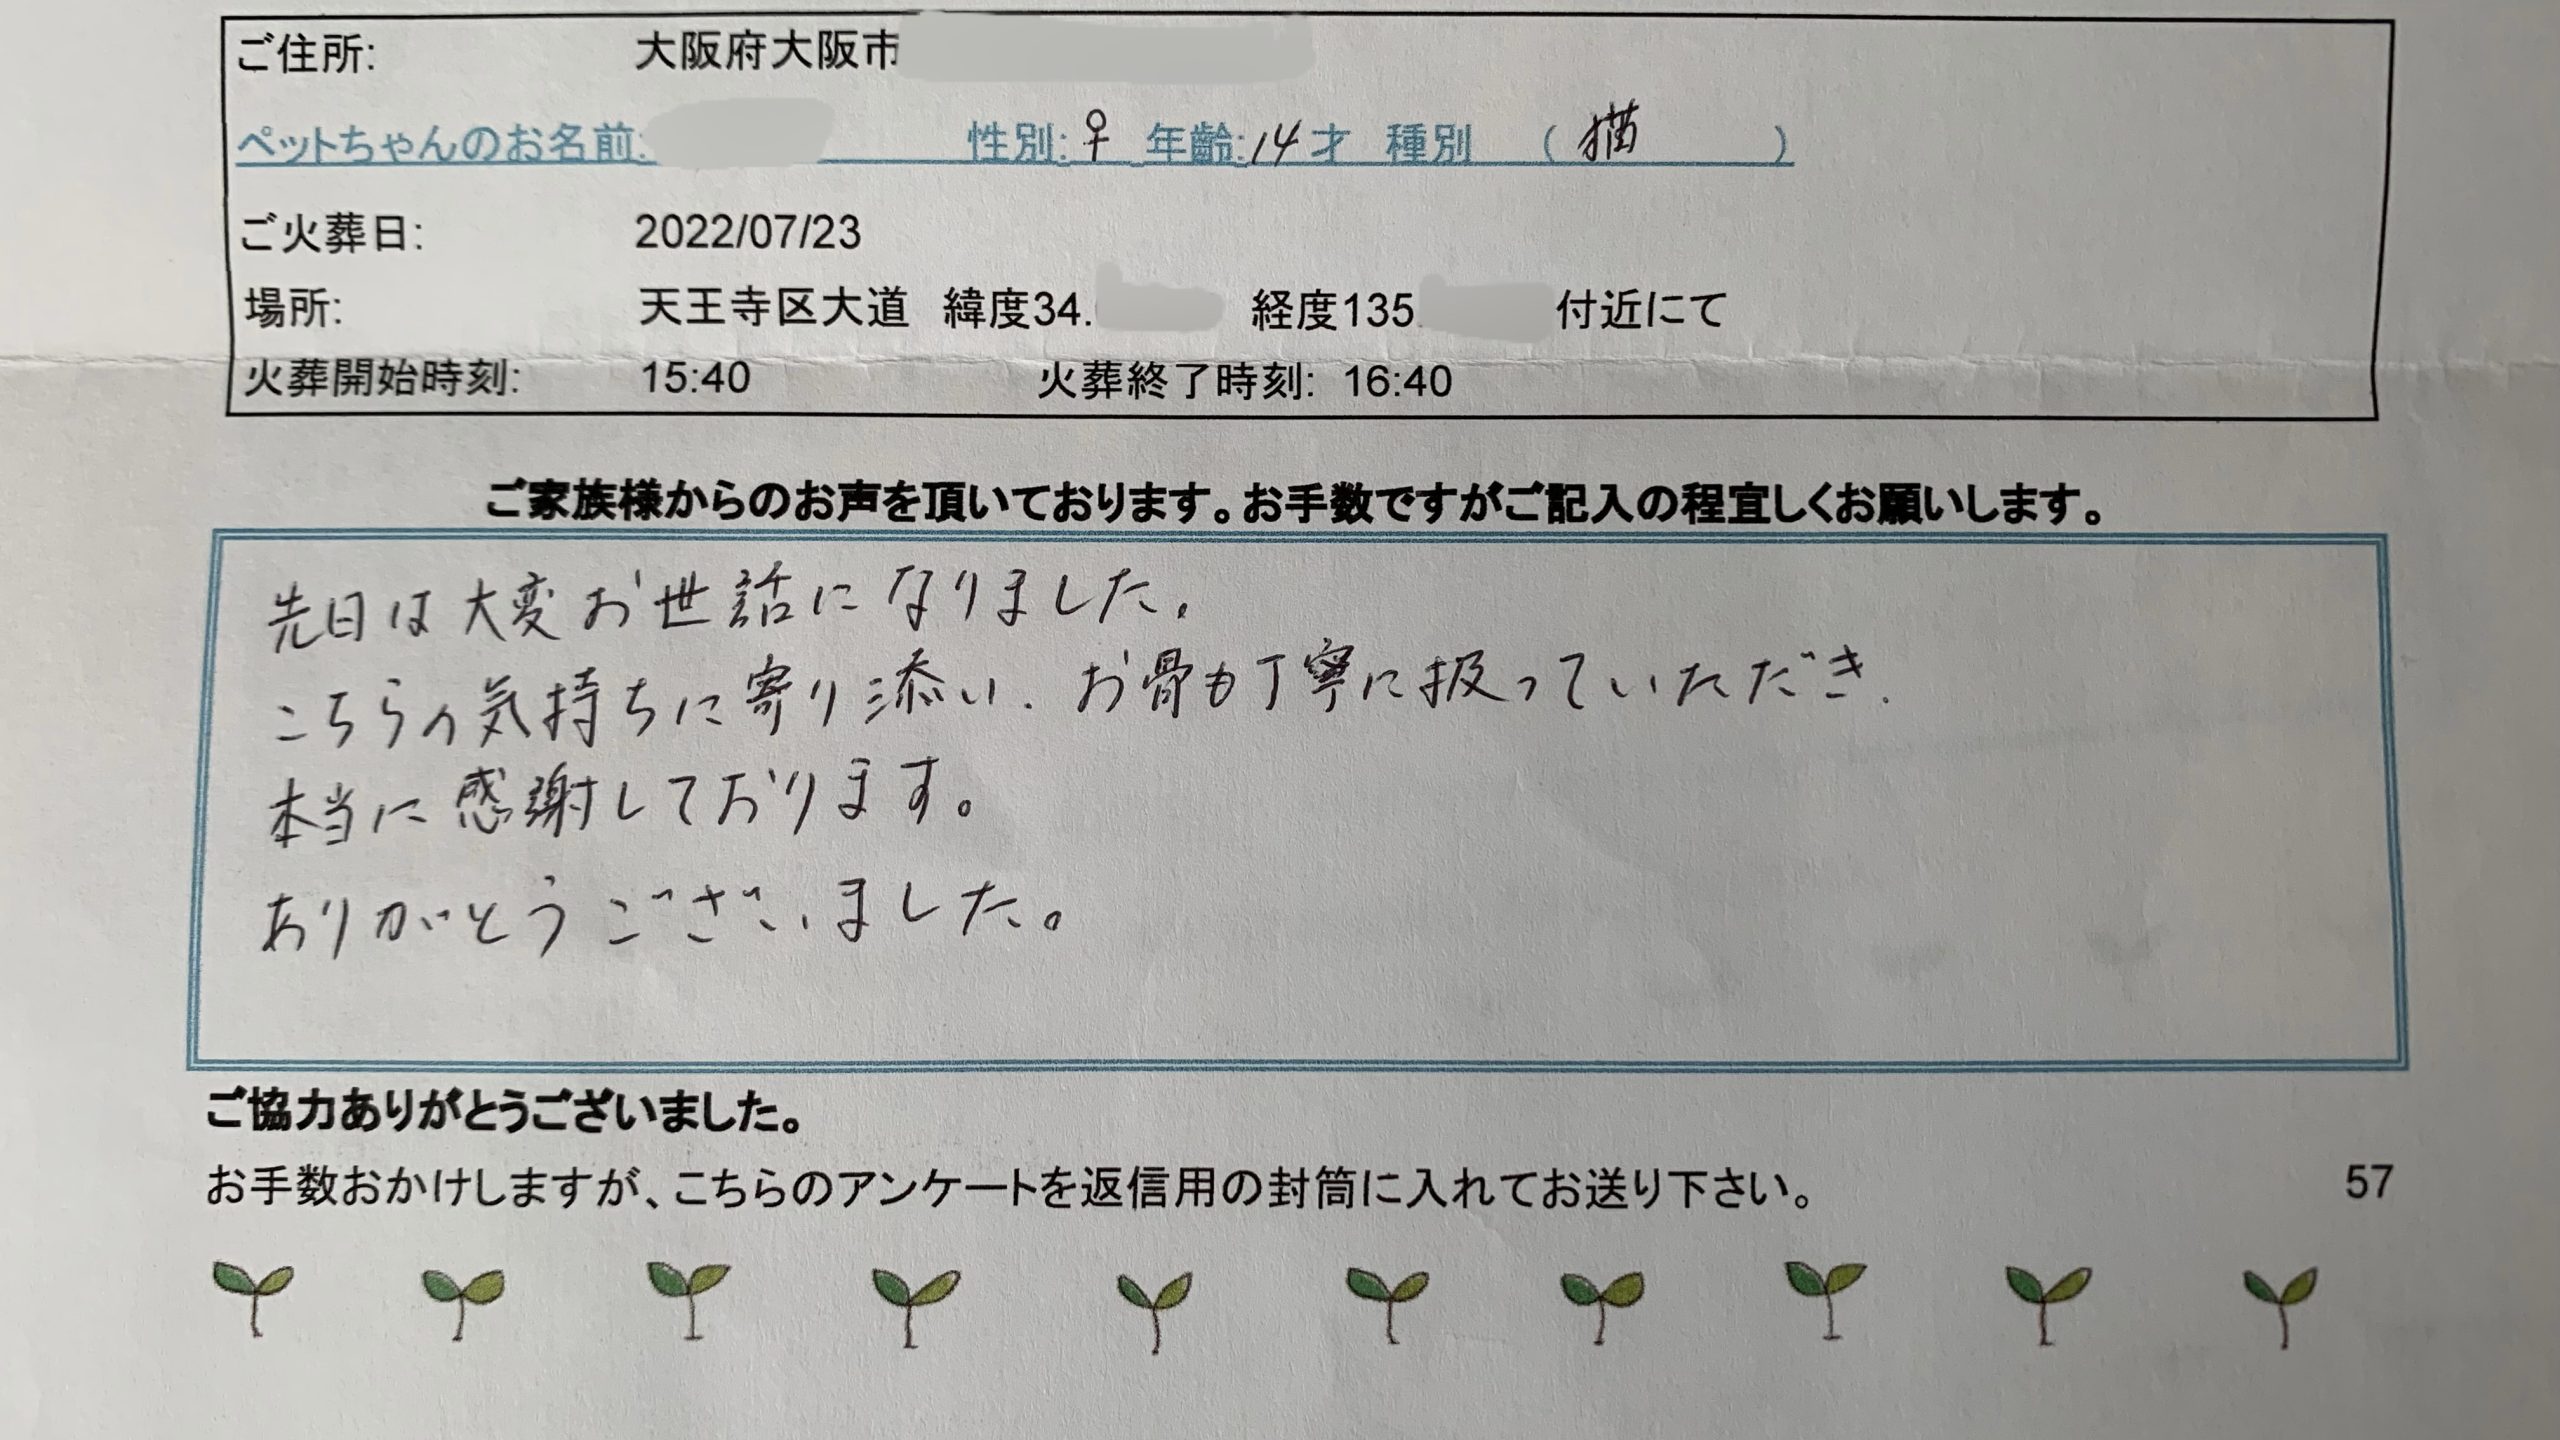 ご住所: 大阪府大阪市
ペットちゃんのお名前: 性別:♀ 年齢:14才 種別 (猫)
ご火葬日: 2022/07/23
場所: 天王寺区大道 緯度34. 経度135. 付近にて
火葬開始時刻: 15:40 火葬終了時刻: 16:40
ご家族様からのお声を頂いております。お手数ですがご記入の程宜しくお願いします。
先日は大変お世話になりました。
こちらの気持ちに寄り添い、お骨も丁寧に扱っていただき、
本当に感謝しております。
ありがとうございました。
ご協力ありがとうございました。
お手数おかけしますが、こちらのアンケートを返信用の封筒に入れてお送り下さい。 57